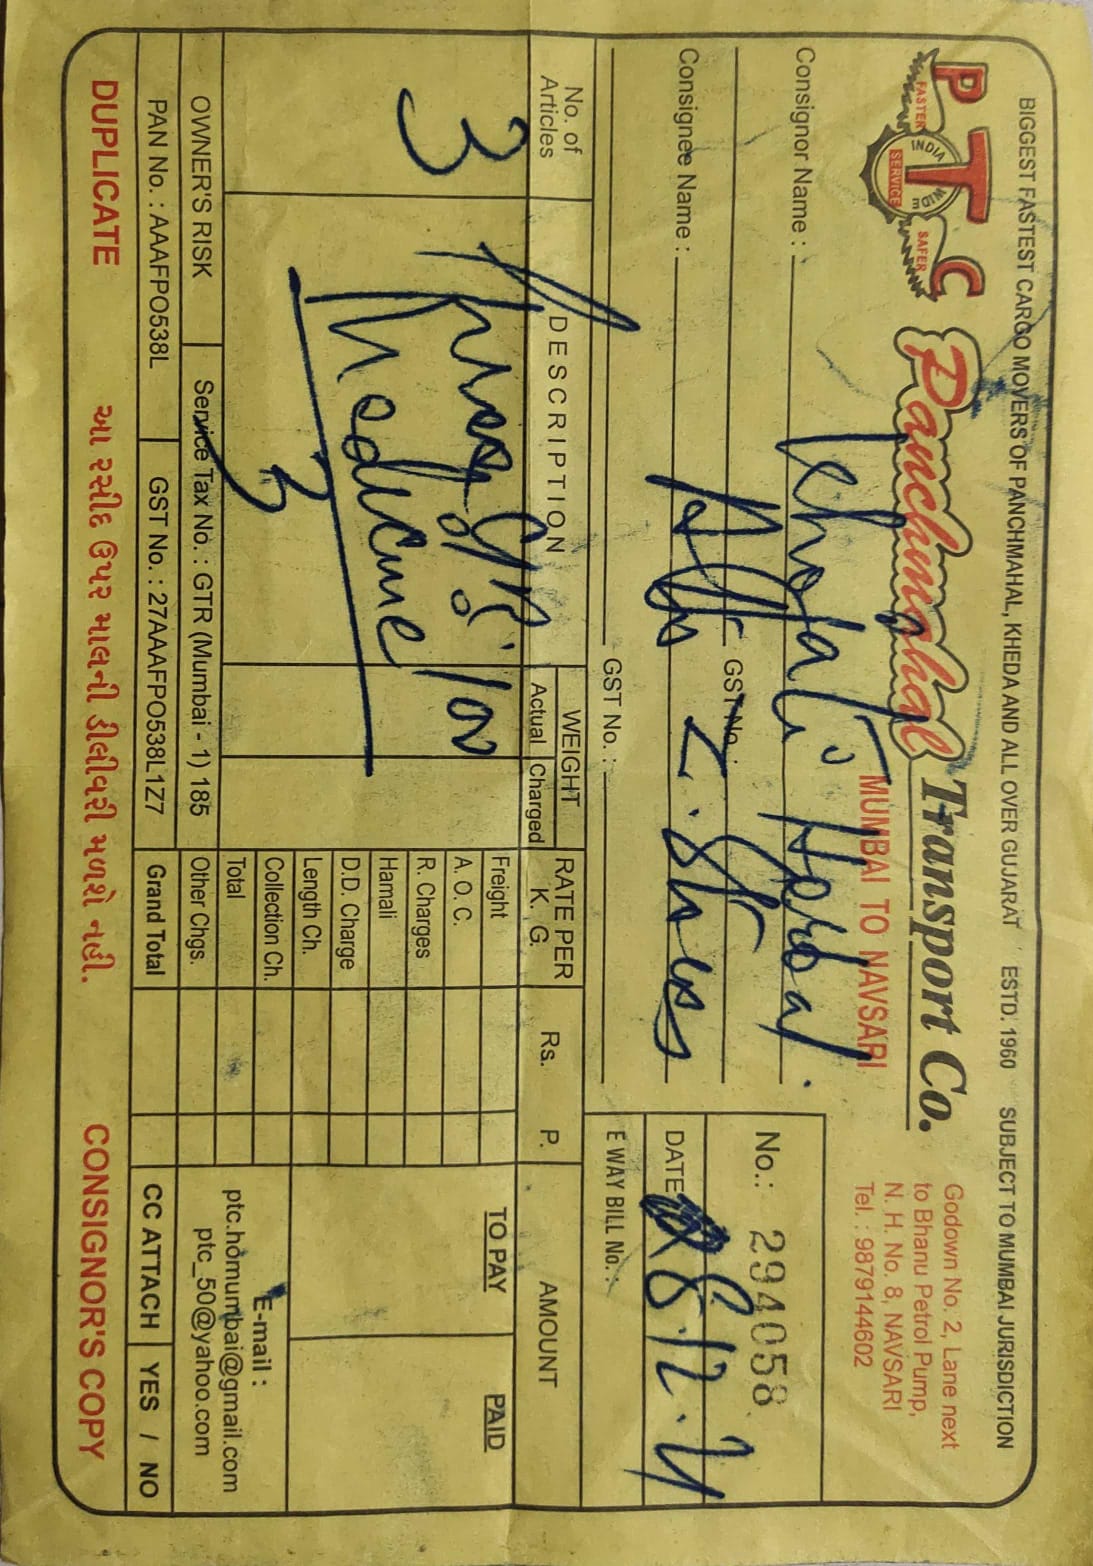 BIGGEST FASTEST CARGO MOVERS OF PANCHMAHAL, KHEDA AND ALL OVER GUJARAT ESTD. 1960 SUBJECT TO MUMBAI JURISDICTION
P T C
FASTER SAFER
INDIA MADE
SERVICE
Panchmahal Transport Co.
MUMBAI TO NAVSARI
Godown No. 2, Lane next
to Bhanu Petrol Pump,
N. H. No. 8, NAVSARI
Tel. : 9879144602
Consignor Name : Herbal
GST No. :
Consignee Name :
GST No. :
No.: 294058
DATE
E WAY BILL No. :
No. of Articles
DESCRIPTION
WEIGHT
Actual Charged
RATE PER K. G.
Rs. P.
AMOUNT
3
Medicine
3
Freight
A. O. C.
R. Charges
Hamali
D.D. Charge
Length Ch.
Collection Ch.
Total
Other Chgs.
Grand Total
TO PAY PAID
E-mail :
ptc.homumbai@gmail.com
ptc_50@yahoo.com
OWNER'S RISK Service Tax No. : GTR (Mumbai - 1) 185
PAN No. : AAAFPO538L GST No. : 27AAAFPO538L1Z7
CC ATTACH YES / NO
DUPLICATE આ રસીદ ઉપર માલની ડીલીવરી મળશે નહી. CONSIGNOR'S COPY